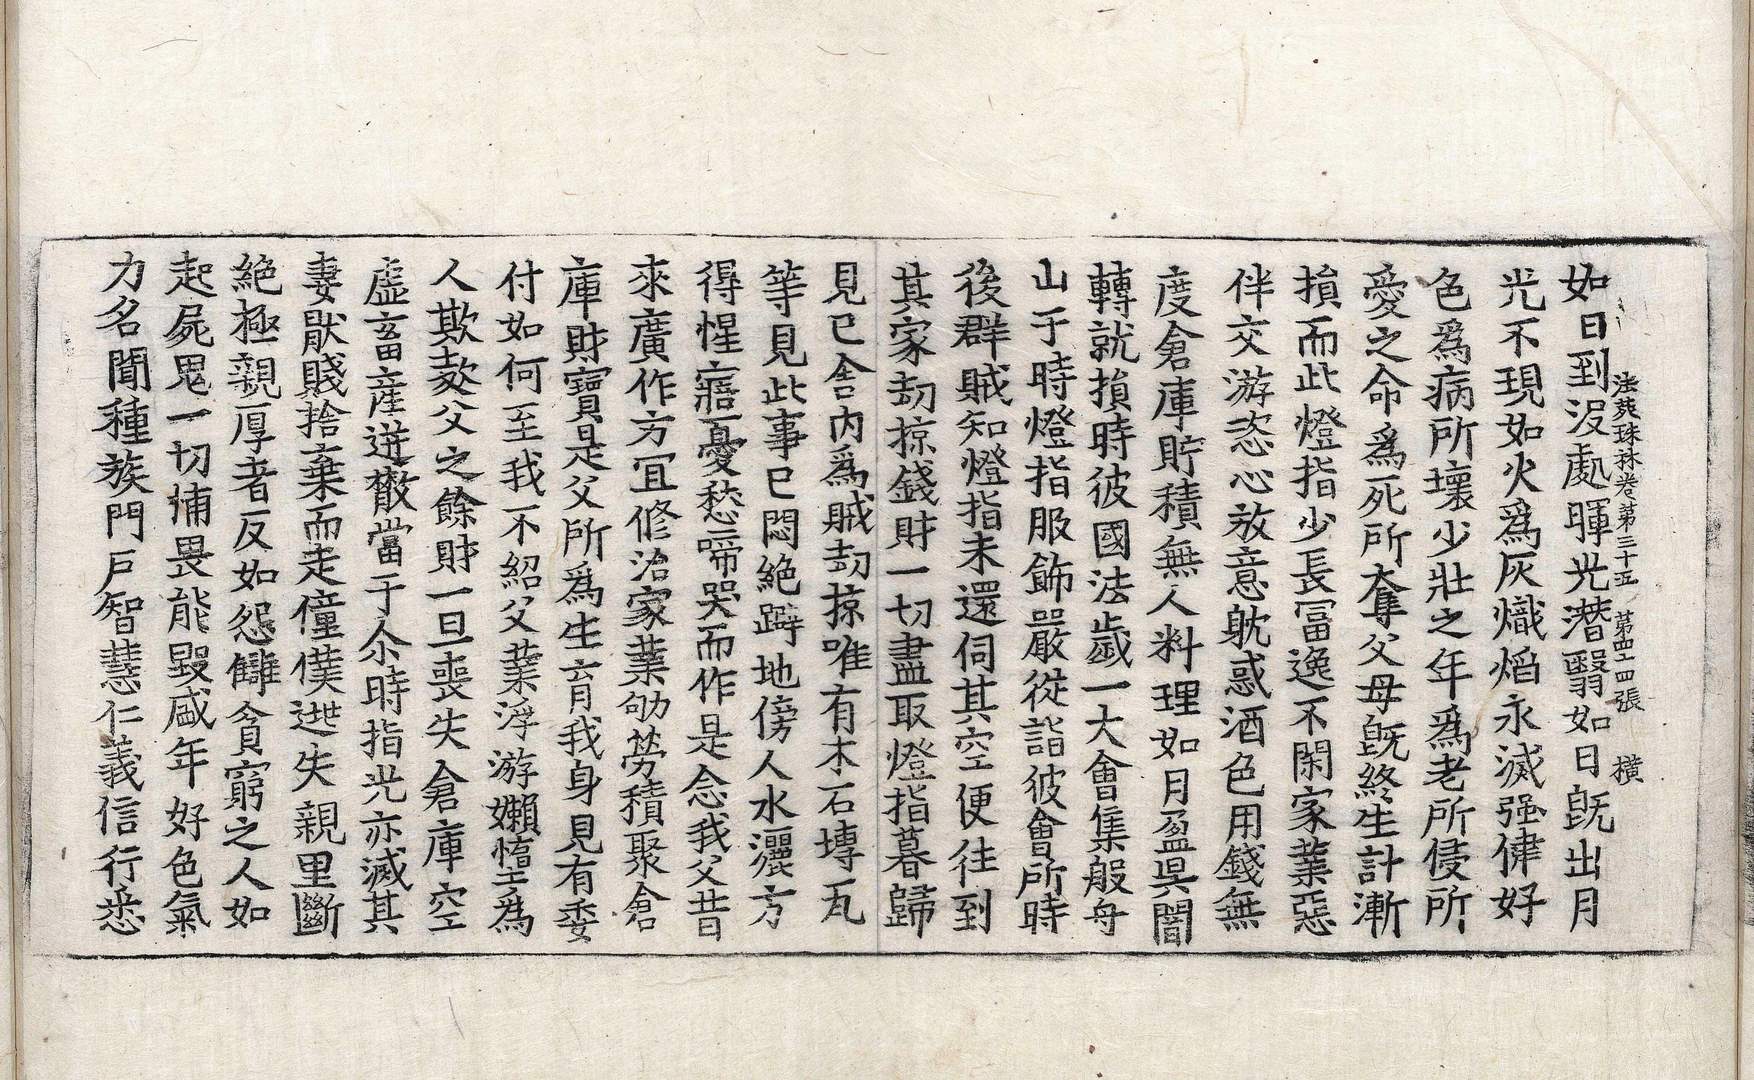 法苑珠林卷第三十五 第四十四張 橫
如日到沒處暉光潛翳如日旣出月
光不現如火爲灰熾焰永滅强健好
色爲病所壞少壯之年爲老所侵所
愛之命爲死所奪父母旣終生計漸
損而此燈指少長冨逸不閑家業惡
伴交游恣心放意躭惑酒色用錢無
度倉庫貯積無人料理如月盈昃闇
轉就損時彼國法歲一大會集般舟
山于時燈指服飾嚴從詣彼會所時
後群賊知燈指未還伺其空便往到
其家劫掠錢財一切盡取燈指暮歸
見已舍內爲賊劫掠唯有木石塼瓦
等見此事已悶絕躃地傍人水灑方
得惺寤憂愁啼哭而作是念我父昔
來廣作方冝修治家業劬勞積聚倉
庫財寶是父所爲生育我身見有委
付如何至我不紹父業浮游嬾惰爲
人欺欻父之餘財一旦喪失倉庫空
虛畜產迸散當于尒時指光亦滅其
妻厭賤捨棄而走僮僕逃失親里斷
絕極親厚者反如怨讎貧窮之人如
起屍鬼一切怖畏能毀盛年好色氣
力名聞種族門戶智慧仁義信行悉